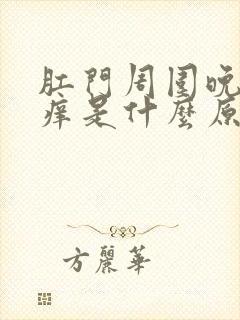 肛門周圍晚
痒是什麼原
方麗華